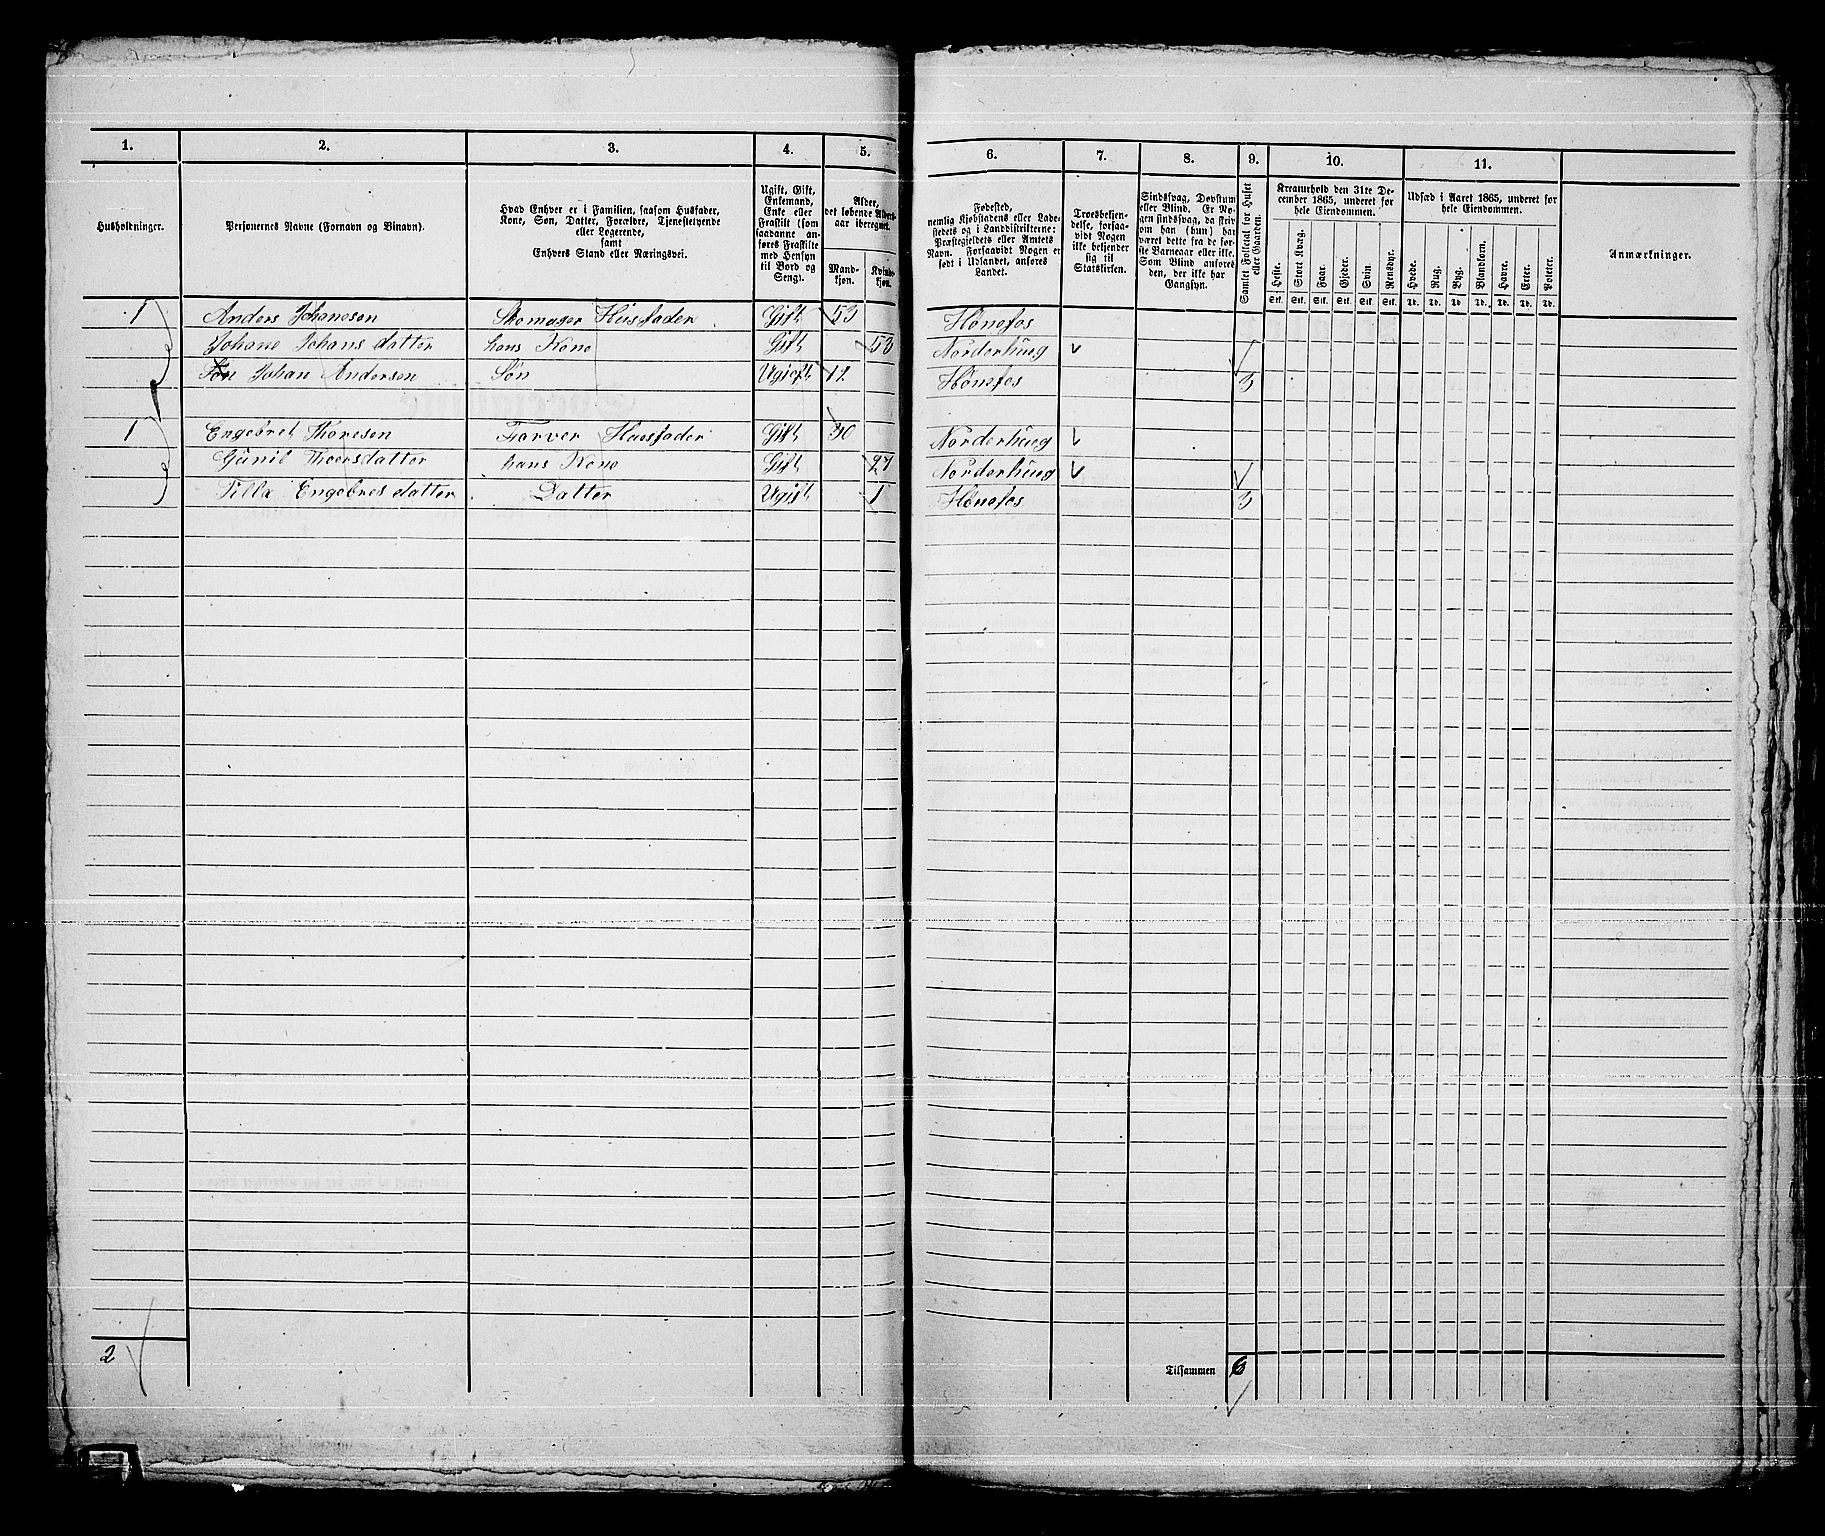 1. 2. 3. 4. 5. 6. 7. 8. 9. 10. 11.
Husholdninger.
Personernes Navne (Fornavn og Binavn).
Hvad Enhver er i Familien, saasom Husfader,
Kone, Søn, Datter, Forældre, Tjenestetyende
eller Logerende,
samt
Enhvers Stand eller Næringsvei.
Ugift, Gift,
Enkemand,
Enke eller
Fraskilt (som
saadanne an-
føres Fraskilte
med Hensyn
til Bord og
Seng).
Alder,
det løbende Alders-
aar iberegnet.
Mand-
kjøn.
Kvinde-
kjøn.
Fødested,
nemlig Kjøbstadens eller Lade-
stedets og i Landdistrikterne:
Præstegjeldets eller Amtets
Navn. Forsaavidt Nogen er
født i Udlandet, anføres
Landet.
Troesbekjen-
delse, forsaa-
vidt Nogen
ikke bekjender
sig til
Statskirken.
Sindssvag, Døvstum
eller Blind. Er No-
gen sindssvag, da skriv
om han (hun) har
været dette fra de før-
ste Barneaar eller ikke.
Som Blind anføres
den, der ikke har
Gangsyn.
Samlet Folketal for Huset
eller Gaarden.
Kreaturhold den 31te De-
cember 1865, underet for
hele Eiendommen.
Heste. Stort Kvæg. Faar. Gjeder. Svin. Rensdyr.
Stk. Stk. Stk. Stk. Stk. Stk.
Udsæd i Aaret 1865, underet for
hele Eiendommen.
Hvede. Rug. Byg. Blandkorn. Havre. Erter. Poteter.
Td. Td. Td. Td. Td. Td. Td.
Anmærkninger.
1 Anders Johanesen Skomager Husfader Gift 53 Hønefos
Johane Johansdatter hans Kone Gift 53 Norderhuug
Johan Andersen Søn Ugift 12 Hønefos 3
1 Engebret Thoresen Farver Husfader Gift 30 Norderhuug
Gunil Thoersdatter hans Kone Gift 27 Norderhuug
Tilla Engebresdatter Datter Ugift 1 Hønefos 3
2
Tilsammen 6